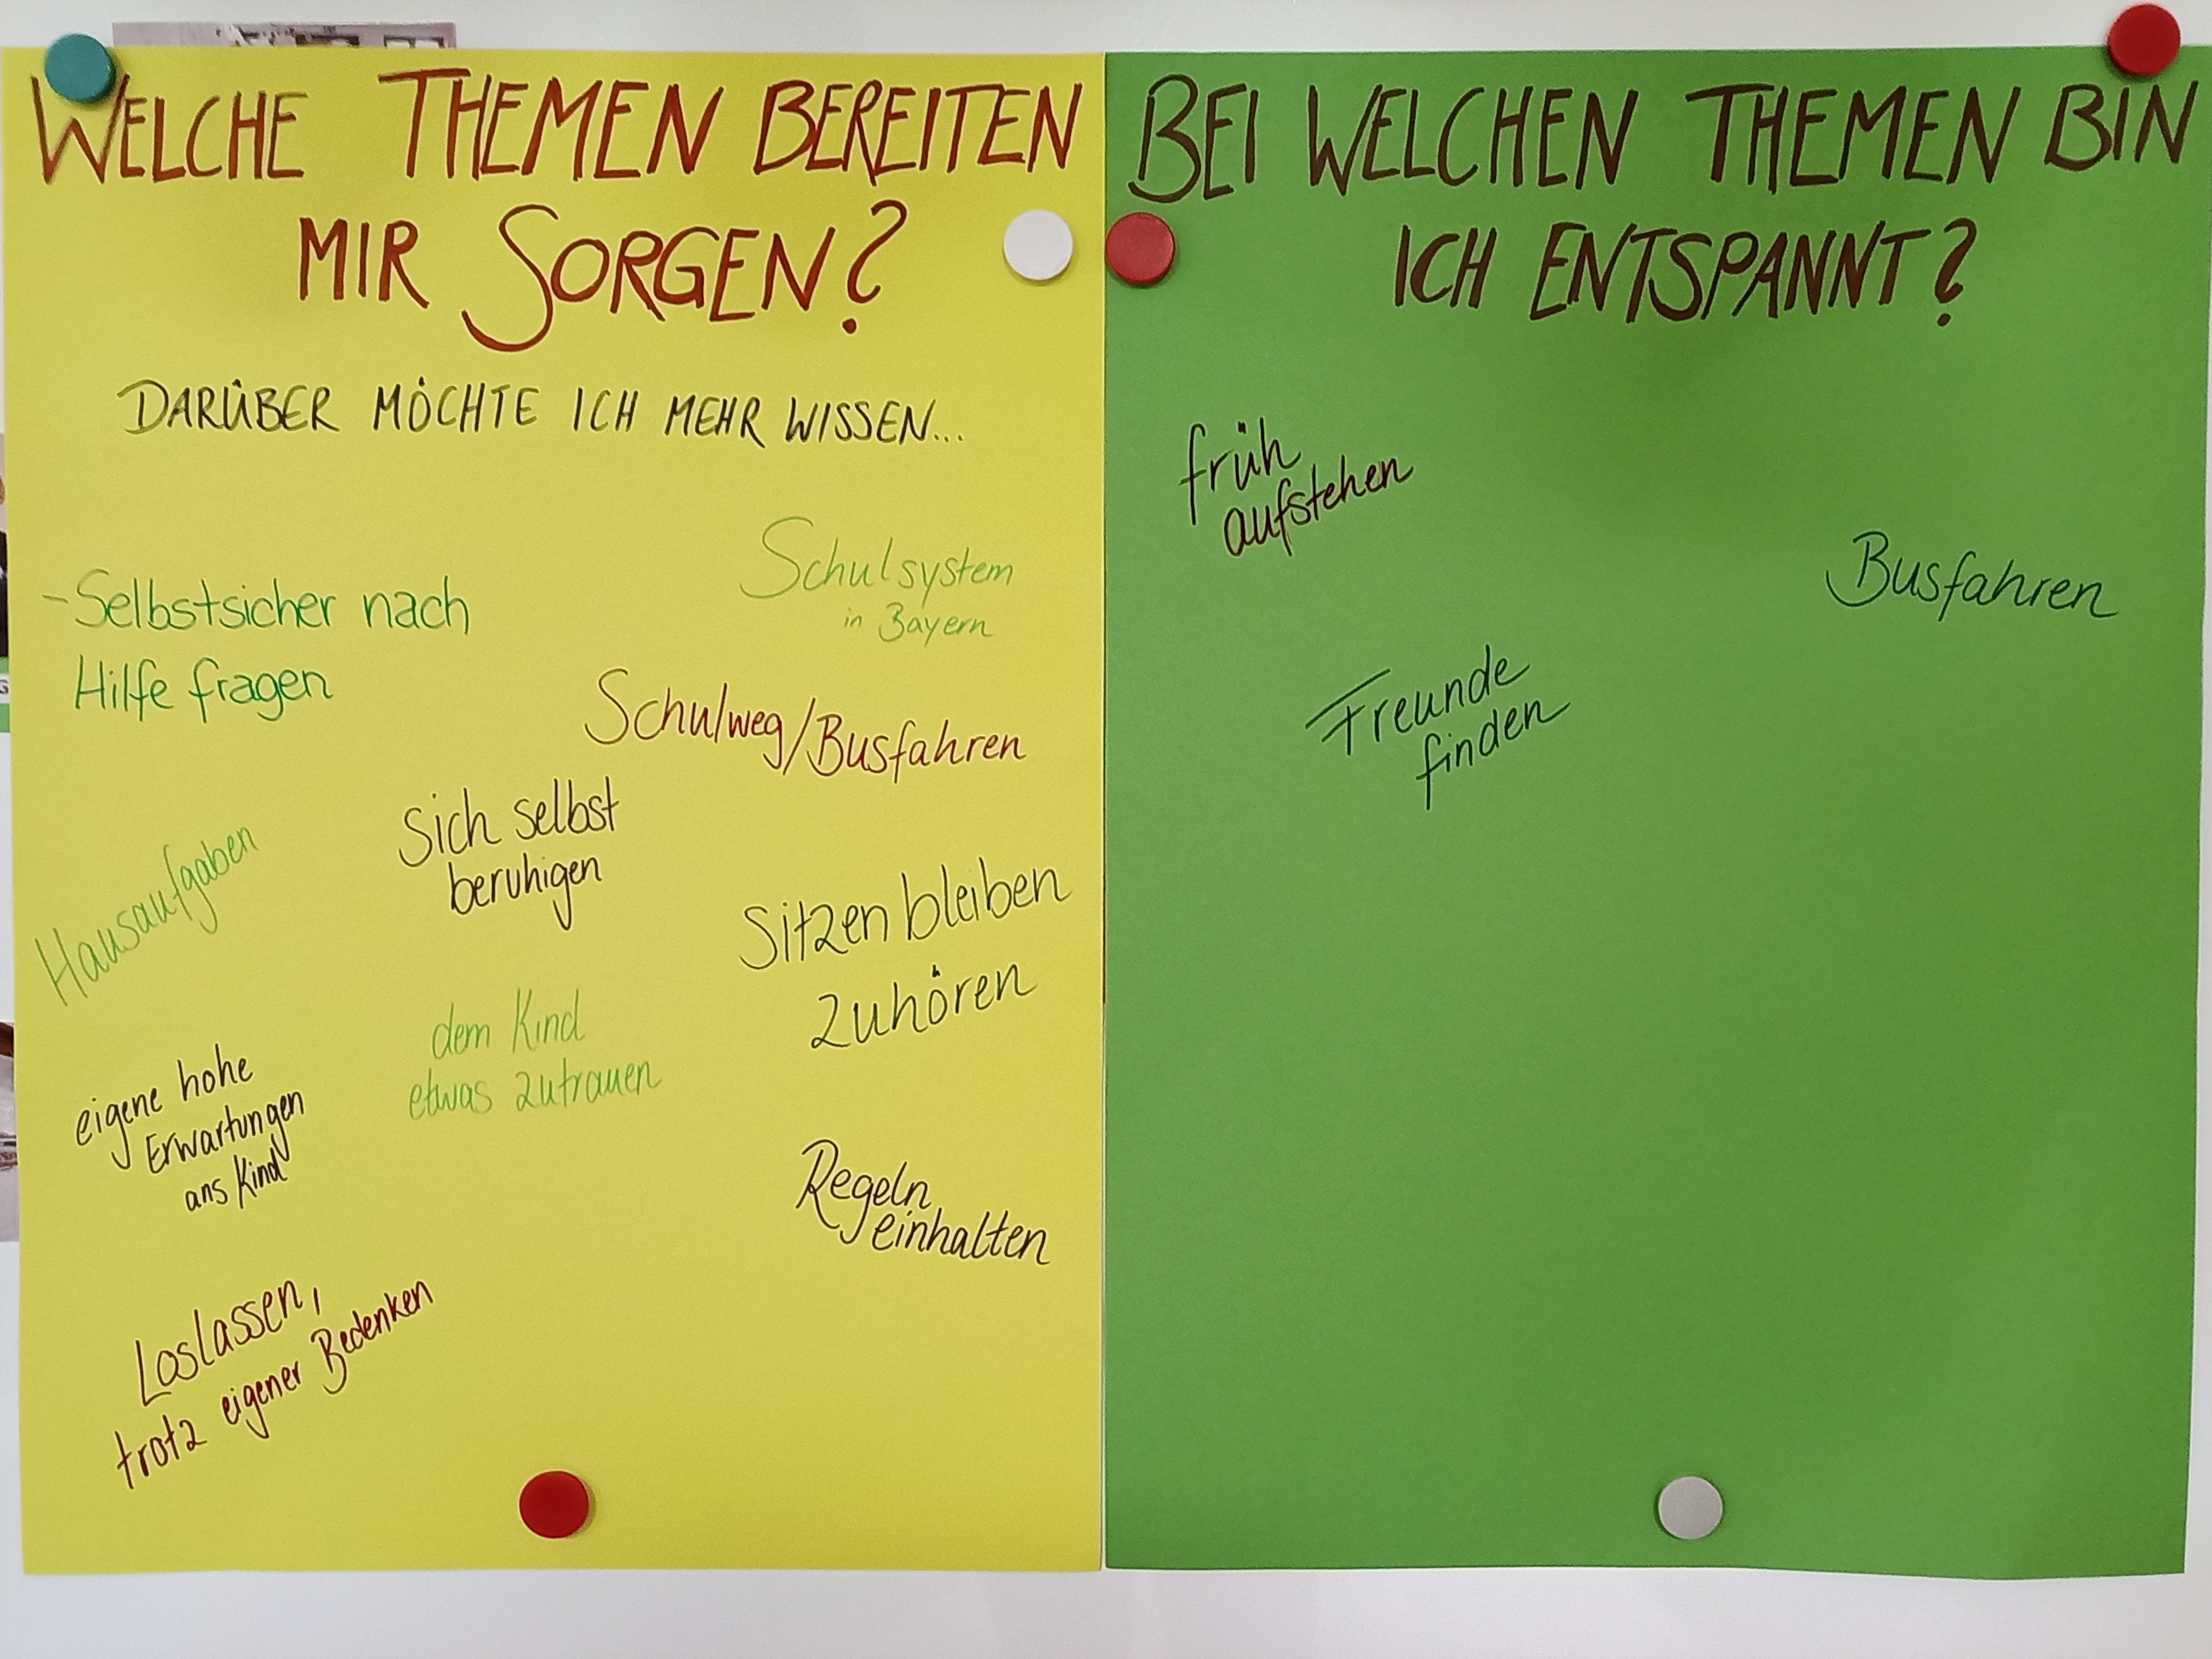 WELCHE THEMEN BEREITEN
MIR SORGEN?
DARÜBER MÖCHTE ICH MEHR WISSEN...
- Selbstsicher nach
Hilfe fragen
Schulsystem
in Bayern
Schulweg/Busfahren
Sich selbst
beruhigen
Hausaufgaben
Sitzen bleiben
zuhören
dem Kind
etwas zutrauen
eigene hohe
Erwartungen
ans Kind
Regeln
einhalten
Loslassen,
trotz eigener Bedenken
BEI WELCHEN THEMEN BIN
ICH ENTSPANNT?
früh
aufstehen
Busfahren
Freunde
finden